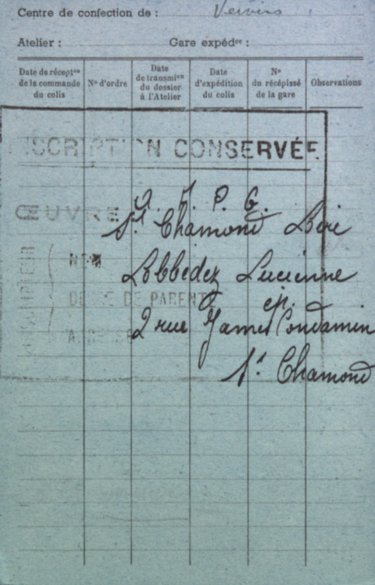 Centre de confection de : Verviers
Atelier : Gare expéd^ce :
Date de récept^on de la commande du colis
N° d'ordre
Date de transmi^on du dossier à l'Atelier
Date d'expédition du colis
N° du récépissé de la gare
Observations
INSCRIPTION CONSERVÉE
ŒUVRE
O. J. P. G.
St Chamond Loire
NOM
Lobbedez Lucienne
DEGRÉ DE PARENTÉ
ep.
2 rue James Condamin
St Chamond